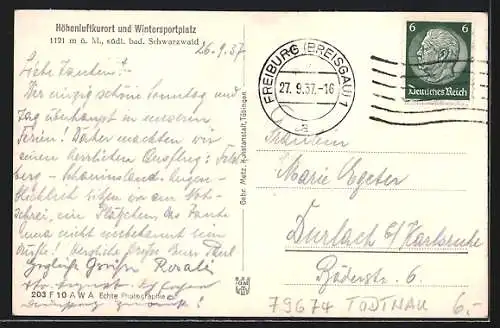 Höhenluftkurort und Wintersportplatz
1121 m ü. M., südl. bad. Schwarzwald
26.9.37
Liebe Tanten!
Der einzig schöne Sonntag und
Tag überhaupt in unseren
Ferien! Daher machten wir
einen herrlichen Ausflug: Feld-
berg - Schauinsland. Augen-
blicklich sitzen wir am Not-
schrei, ein Plätzchen, das Tante
Anna nicht unbekannt sein
dürfte! Herzliche Grüße Euer Paul
Grüße Rosalie
203 F 10 A W A Echte Photographie
Gebr. Metz, Kunstanstalt, Tübingen
FREIBURG (BREISGAU) 1
27. 9. 37.-16
a
6 6
Deutsches Reich
Fräulein
Marie Egeter
Durlach b/Karlsruhe
Baderstr. 6.
79674 TODTNAU 6.-